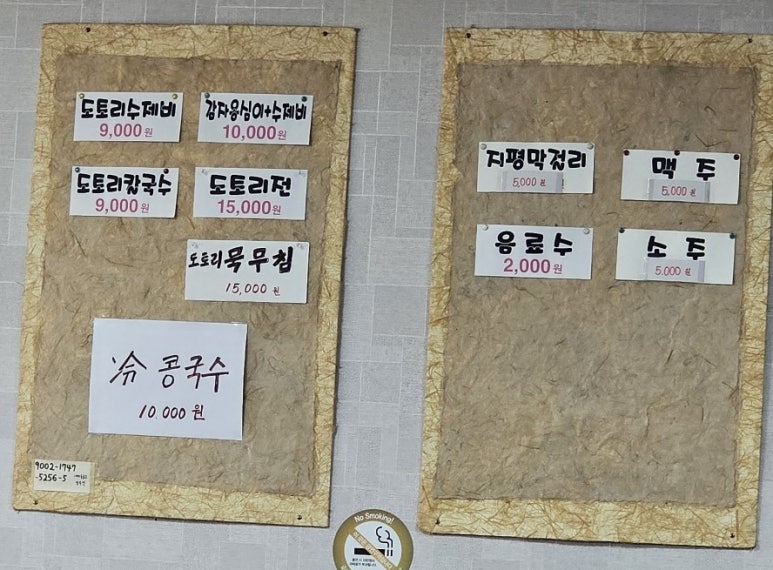 도토리수제비
9,000원
감자옹심이+수제비
10,000원
도토리칼국수
9,000원
도토리전
15,000원
도토리묵무침
15,000 원
冷 콩국수
10,000 원
9002-1747
-5256-5
지평막걸리
5,000 원
맥 주
5,000 원
음료수
2,000원
소 주
5,000 원
No Smoking!